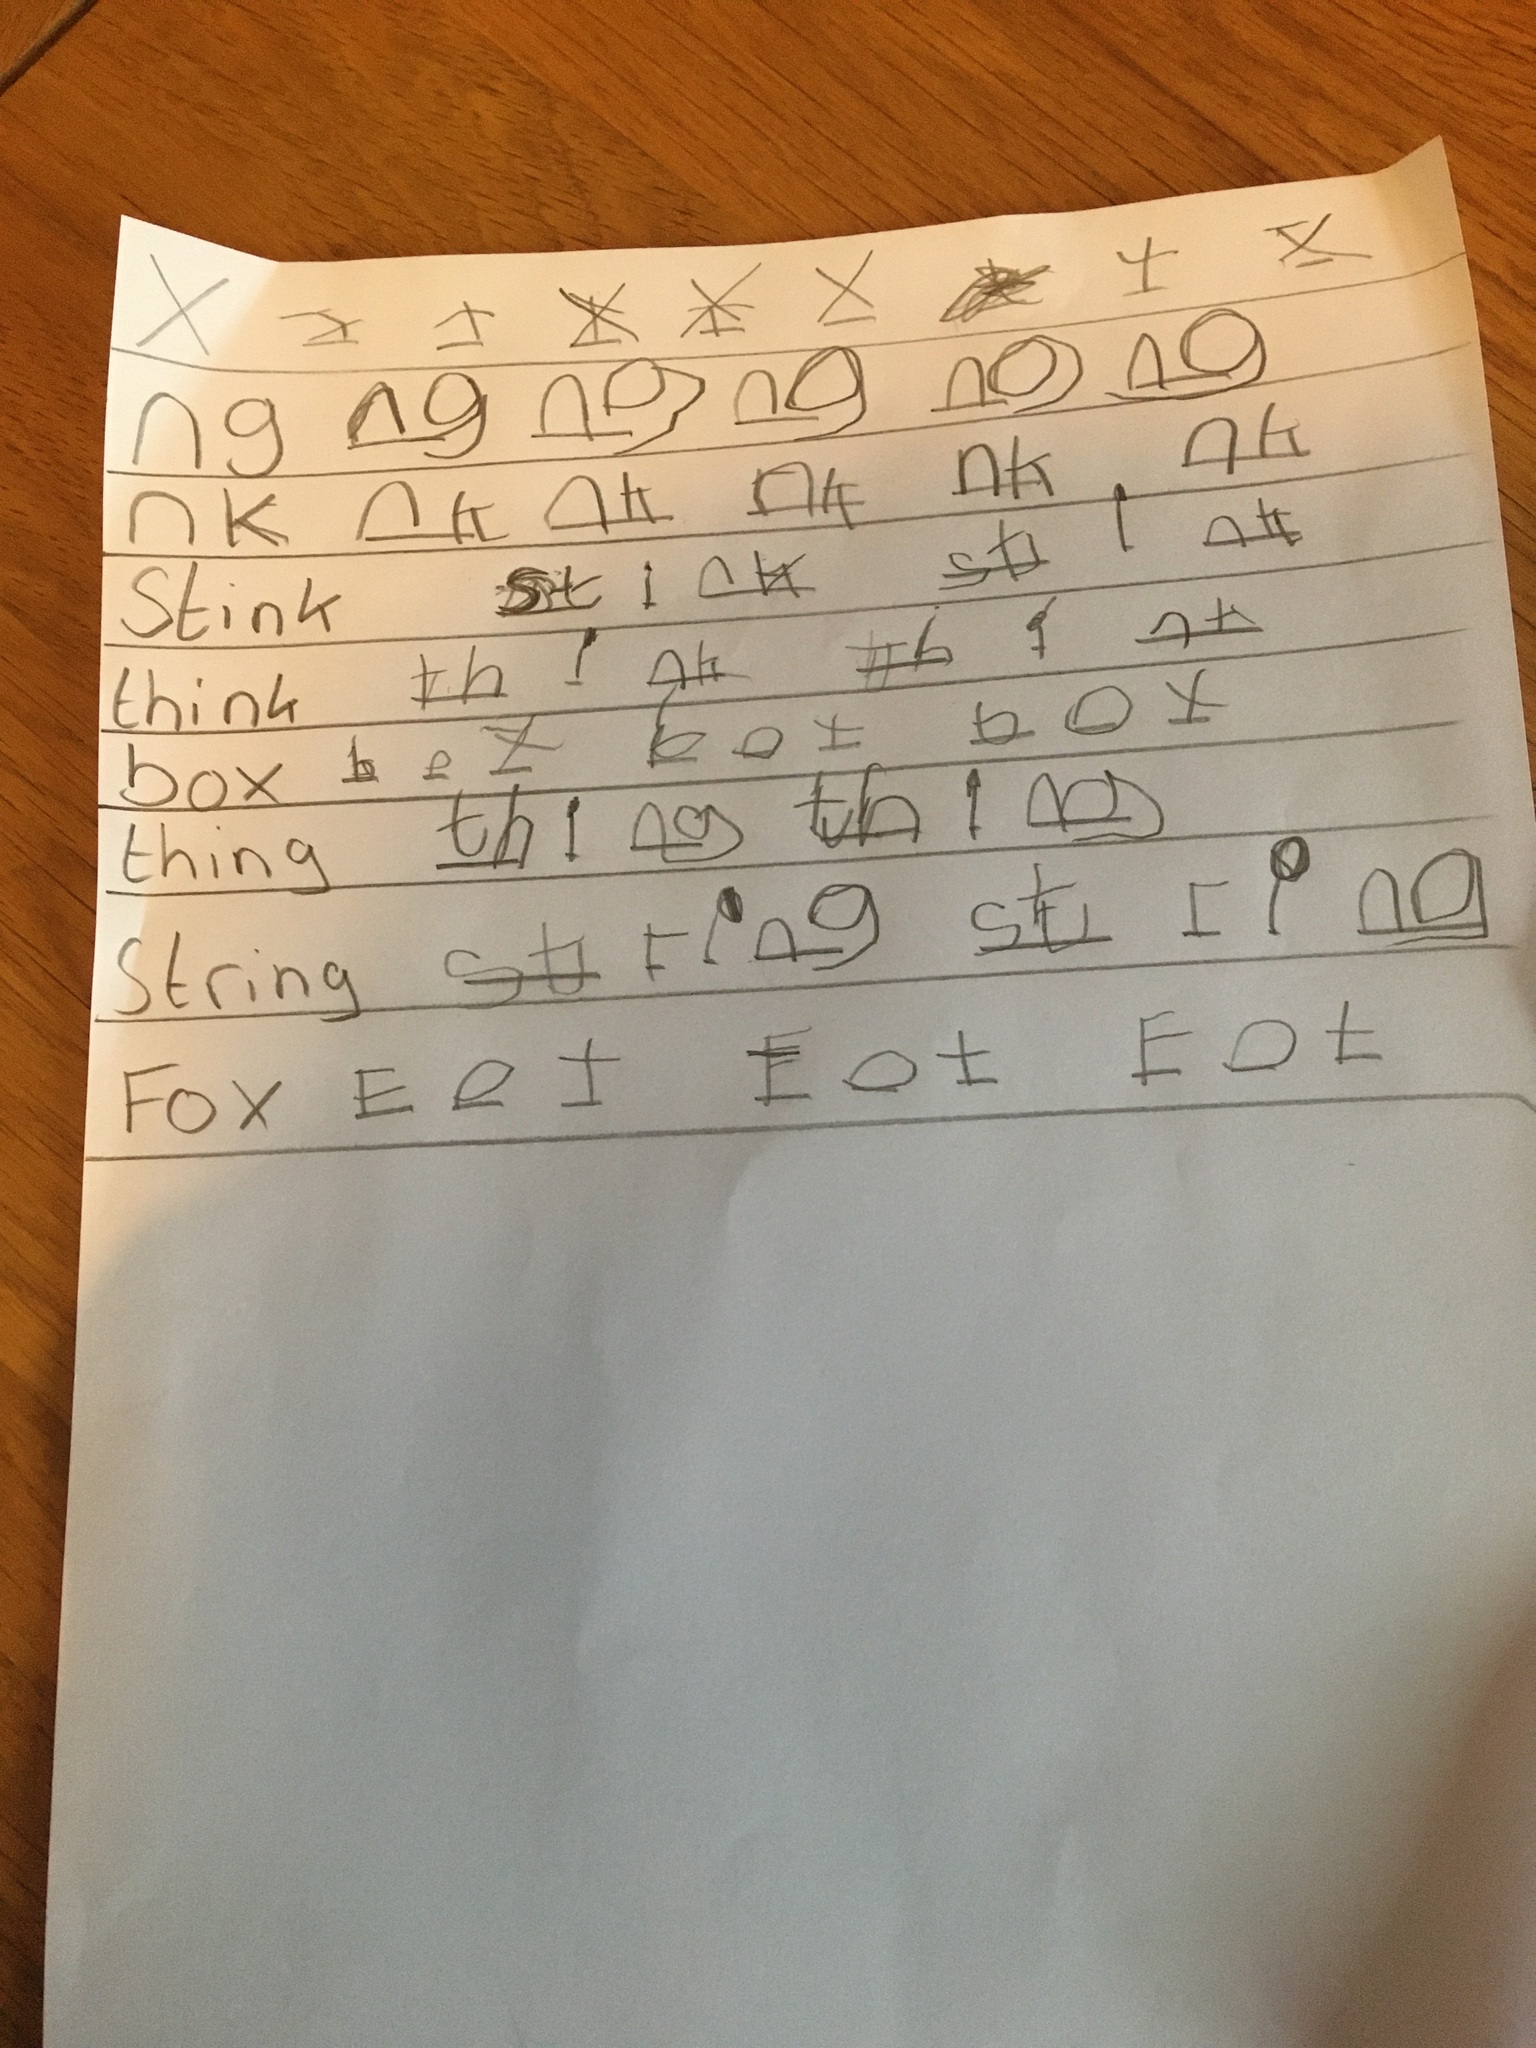 X x x x x x x x
ng ng ng ng ng ng
nk nk nk nk nk nk
Stink st i nk st i nk
think th i nk th i nk
box b o x b o x b o x
thing th i ng th i ng
String st r i ng st r i ng
Fox F o x F o x F o x